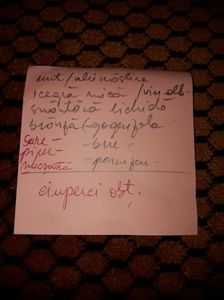 unt / ulei măsline
1 ceapă mică / vin alb
smântână lichidă
brânză - gorgonzola
sare - brie
piper - parmezan
nucșoară
ciuperci